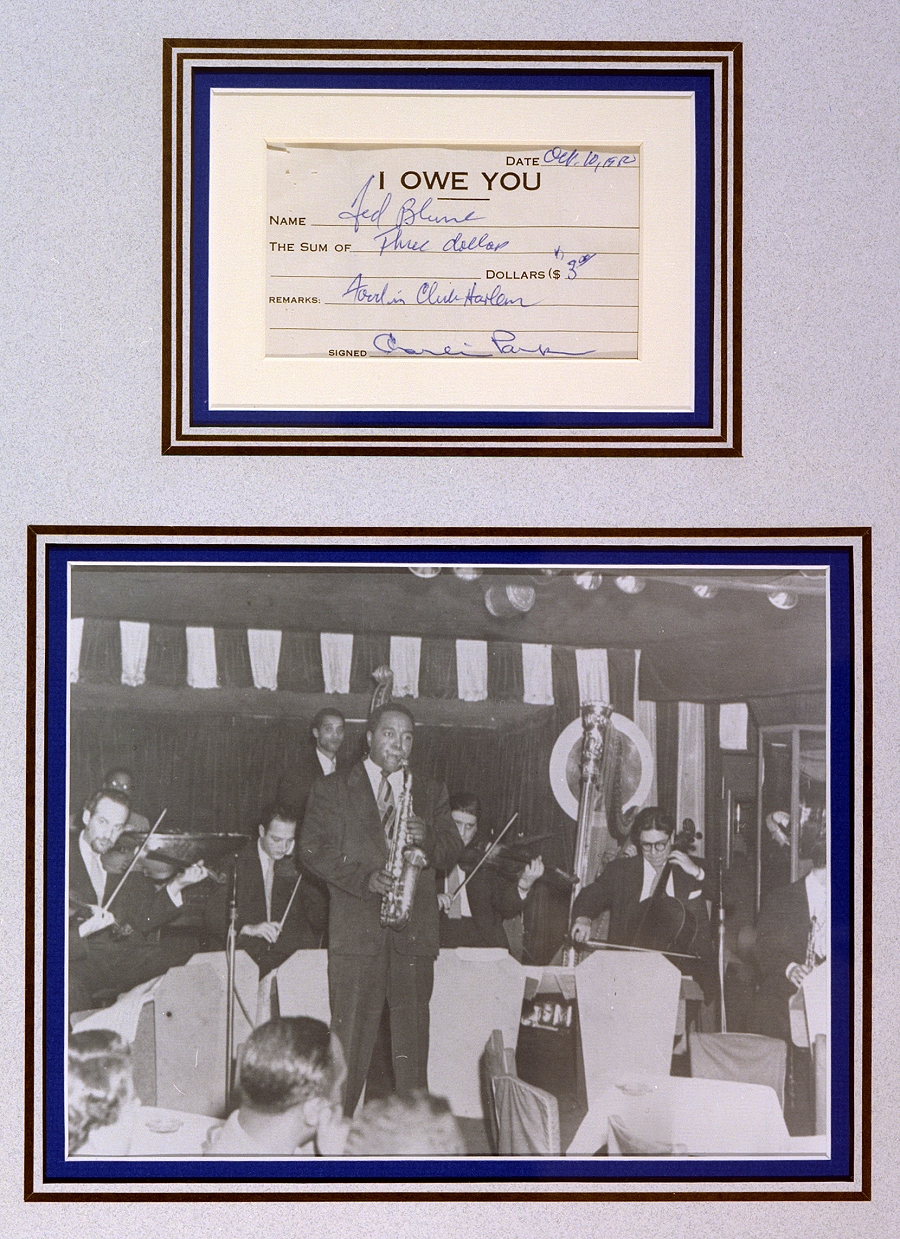 DATE Oct. 10, 1950
I OWE YOU
NAME Ted Blume
THE SUM OF Three dollars
DOLLARS ($ 3.00
REMARKS: Food in Club Harlem
SIGNED Charlie Parker